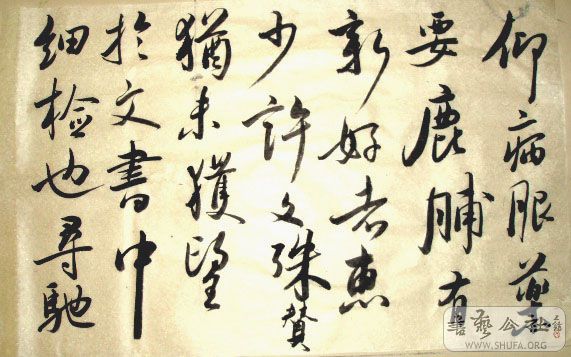 仰病眼藥
要鹿脯有
新好者惠
少許文殊贊
猶未獲望
於文書中
細檢也尋馳
書藝公社
WWW.SHUFA.ORG